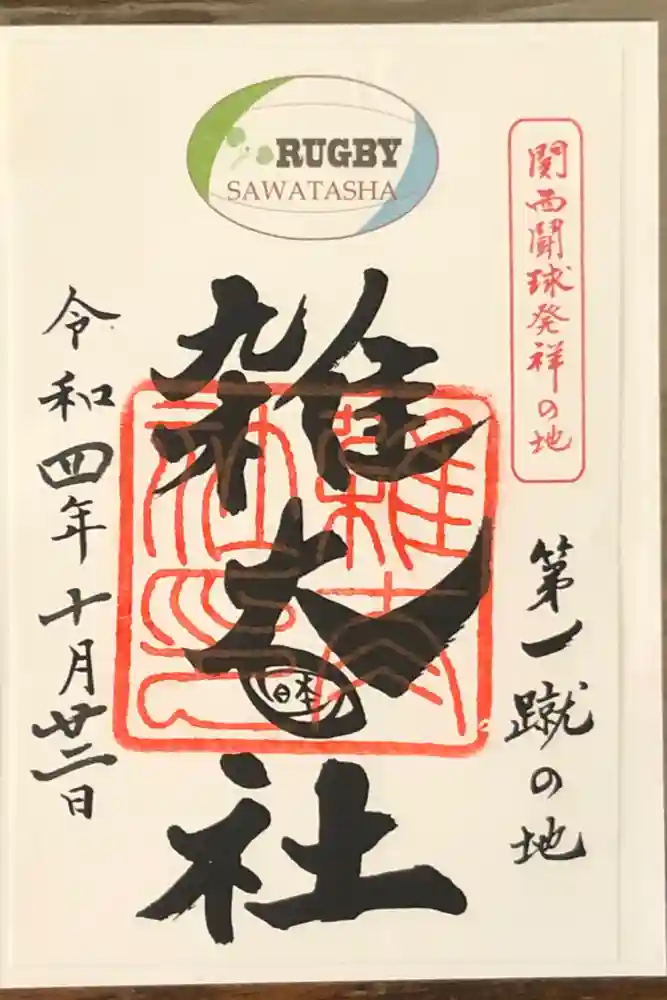 RUGBY
SAWATASHA
関西闘球発祥の地
第一蹴の地
雑太社
日本
雑太社之印
令和四年十月廿二日